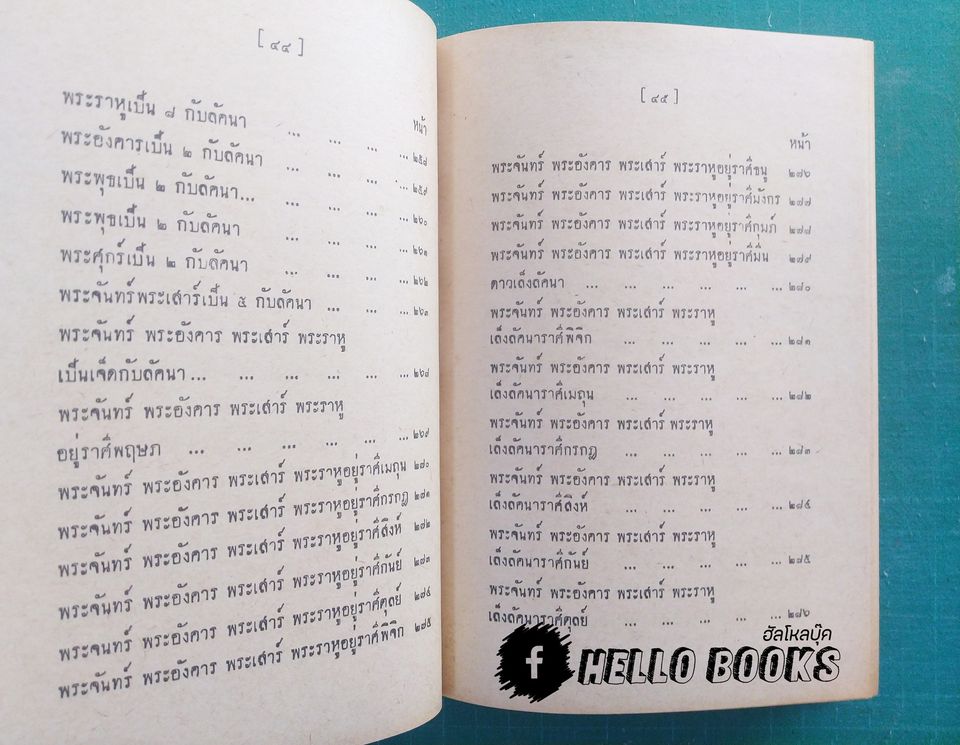 [ ๔๔ ]
หน้า
พระราหูเป็น ๘ กับลัคนา ... ... ... ... ๒๕๘
พระอังคารเป็น ๒ กับลัคนา ... ... ... ... ๒๕๙
พระพุธเป็น ๒ กับลัคนา... ... ... ... ... ๒๖๐
พระพุธเป็น ๒ กับลัคนา ... ... ... ... ๒๖๑
พระศุกร์เป็น ๒ กับลัคนา ... ... ... ... ๒๖๒
พระจันทร์พระเสาร์เป็น ๕ กับลัคนา ... ... ... ๒๖๓
พระจันทร์ พระอังคาร พระเสาร์ พระราหู
เป็นเจ็ดกับลัคนา ... ... ... ... ... ... ๒๖๘
พระจันทร์ พระอังคาร พระเสาร์ พระราหู
อยู่ราศีพฤษภ ... ... ... ... ... ... ๒๖๙
พระจันทร์ พระอังคาร พระเสาร์ พระราหูอยู่ราศีเมถุน ๒๗๐
พระจันทร์ พระอังคาร พระเสาร์ พระราหูอยู่ราศีกรกฎ ๒๗๑
พระจันทร์ พระอังคาร พระเสาร์ พระราหูอยู่ราศีสิงห์ ๒๗๒
พระจันทร์ พระอังคาร พระเสาร์ พระราหูอยู่ราศีกันย์ ๒๗๓
พระจันทร์ พระอังคาร พระเสาร์ พระราหูอยู่ราศีตุลย์ ๒๗๔
พระจันทร์ พระอังคาร พระเสาร์ พระราหูอยู่ราศีพิจิก ๒๗๕
[ ๔๕ ]
หน้า
พระจันทร์ พระอังคาร พระเสาร์ พระราหูอยู่ราศีธนู ๒๗๖
พระจันทร์ พระอังคาร พระเสาร์ พระราหูอยู่ราศีมังกร ๒๗๗
พระจันทร์ พระอังคาร พระเสาร์ พระราหูอยู่ราศีกุมภ์ ๒๗๘
พระจันทร์ พระอังคาร พระเสาร์ พระราหูอยู่ราศีมีน ๒๗๙
ดาวเล็งลัคนา ... ... ... ... ... ๒๘๐
พระจันทร์ พระอังคาร พระเสาร์ พระราหู
เล็งลัคนาราศีพิจิก ... ... ... ... ... ๒๘๑
พระจันทร์ พระอังคาร พระเสาร์ พระราหู
เล็งลัคนาราศีเมถุน ... ... ... ... ๒๘๒
พระจันทร์ พระอังคาร พระเสาร์ พระราหู
เล็งลัคนาราศีกรกฎ ... ... ... ... ๒๘๓
พระจันทร์ พระอังคาร พระเสาร์ พระราหู
เล็งลัคนาราศีสิงห์ ... ... ... ... ๒๘๔
พระจันทร์ พระอังคาร พระเสาร์ พระราหู
เล็งลัคนาราศีกันย์ ... ... ... ... ๒๘๕
พระจันทร์ พระอังคาร พระเสาร์ พระราหู
เล็งลัคนาราศีตุลย์ ... ... ... ... ๒๘๖
ฮัลโหลบุ๊ค
f HELLO BOOKS